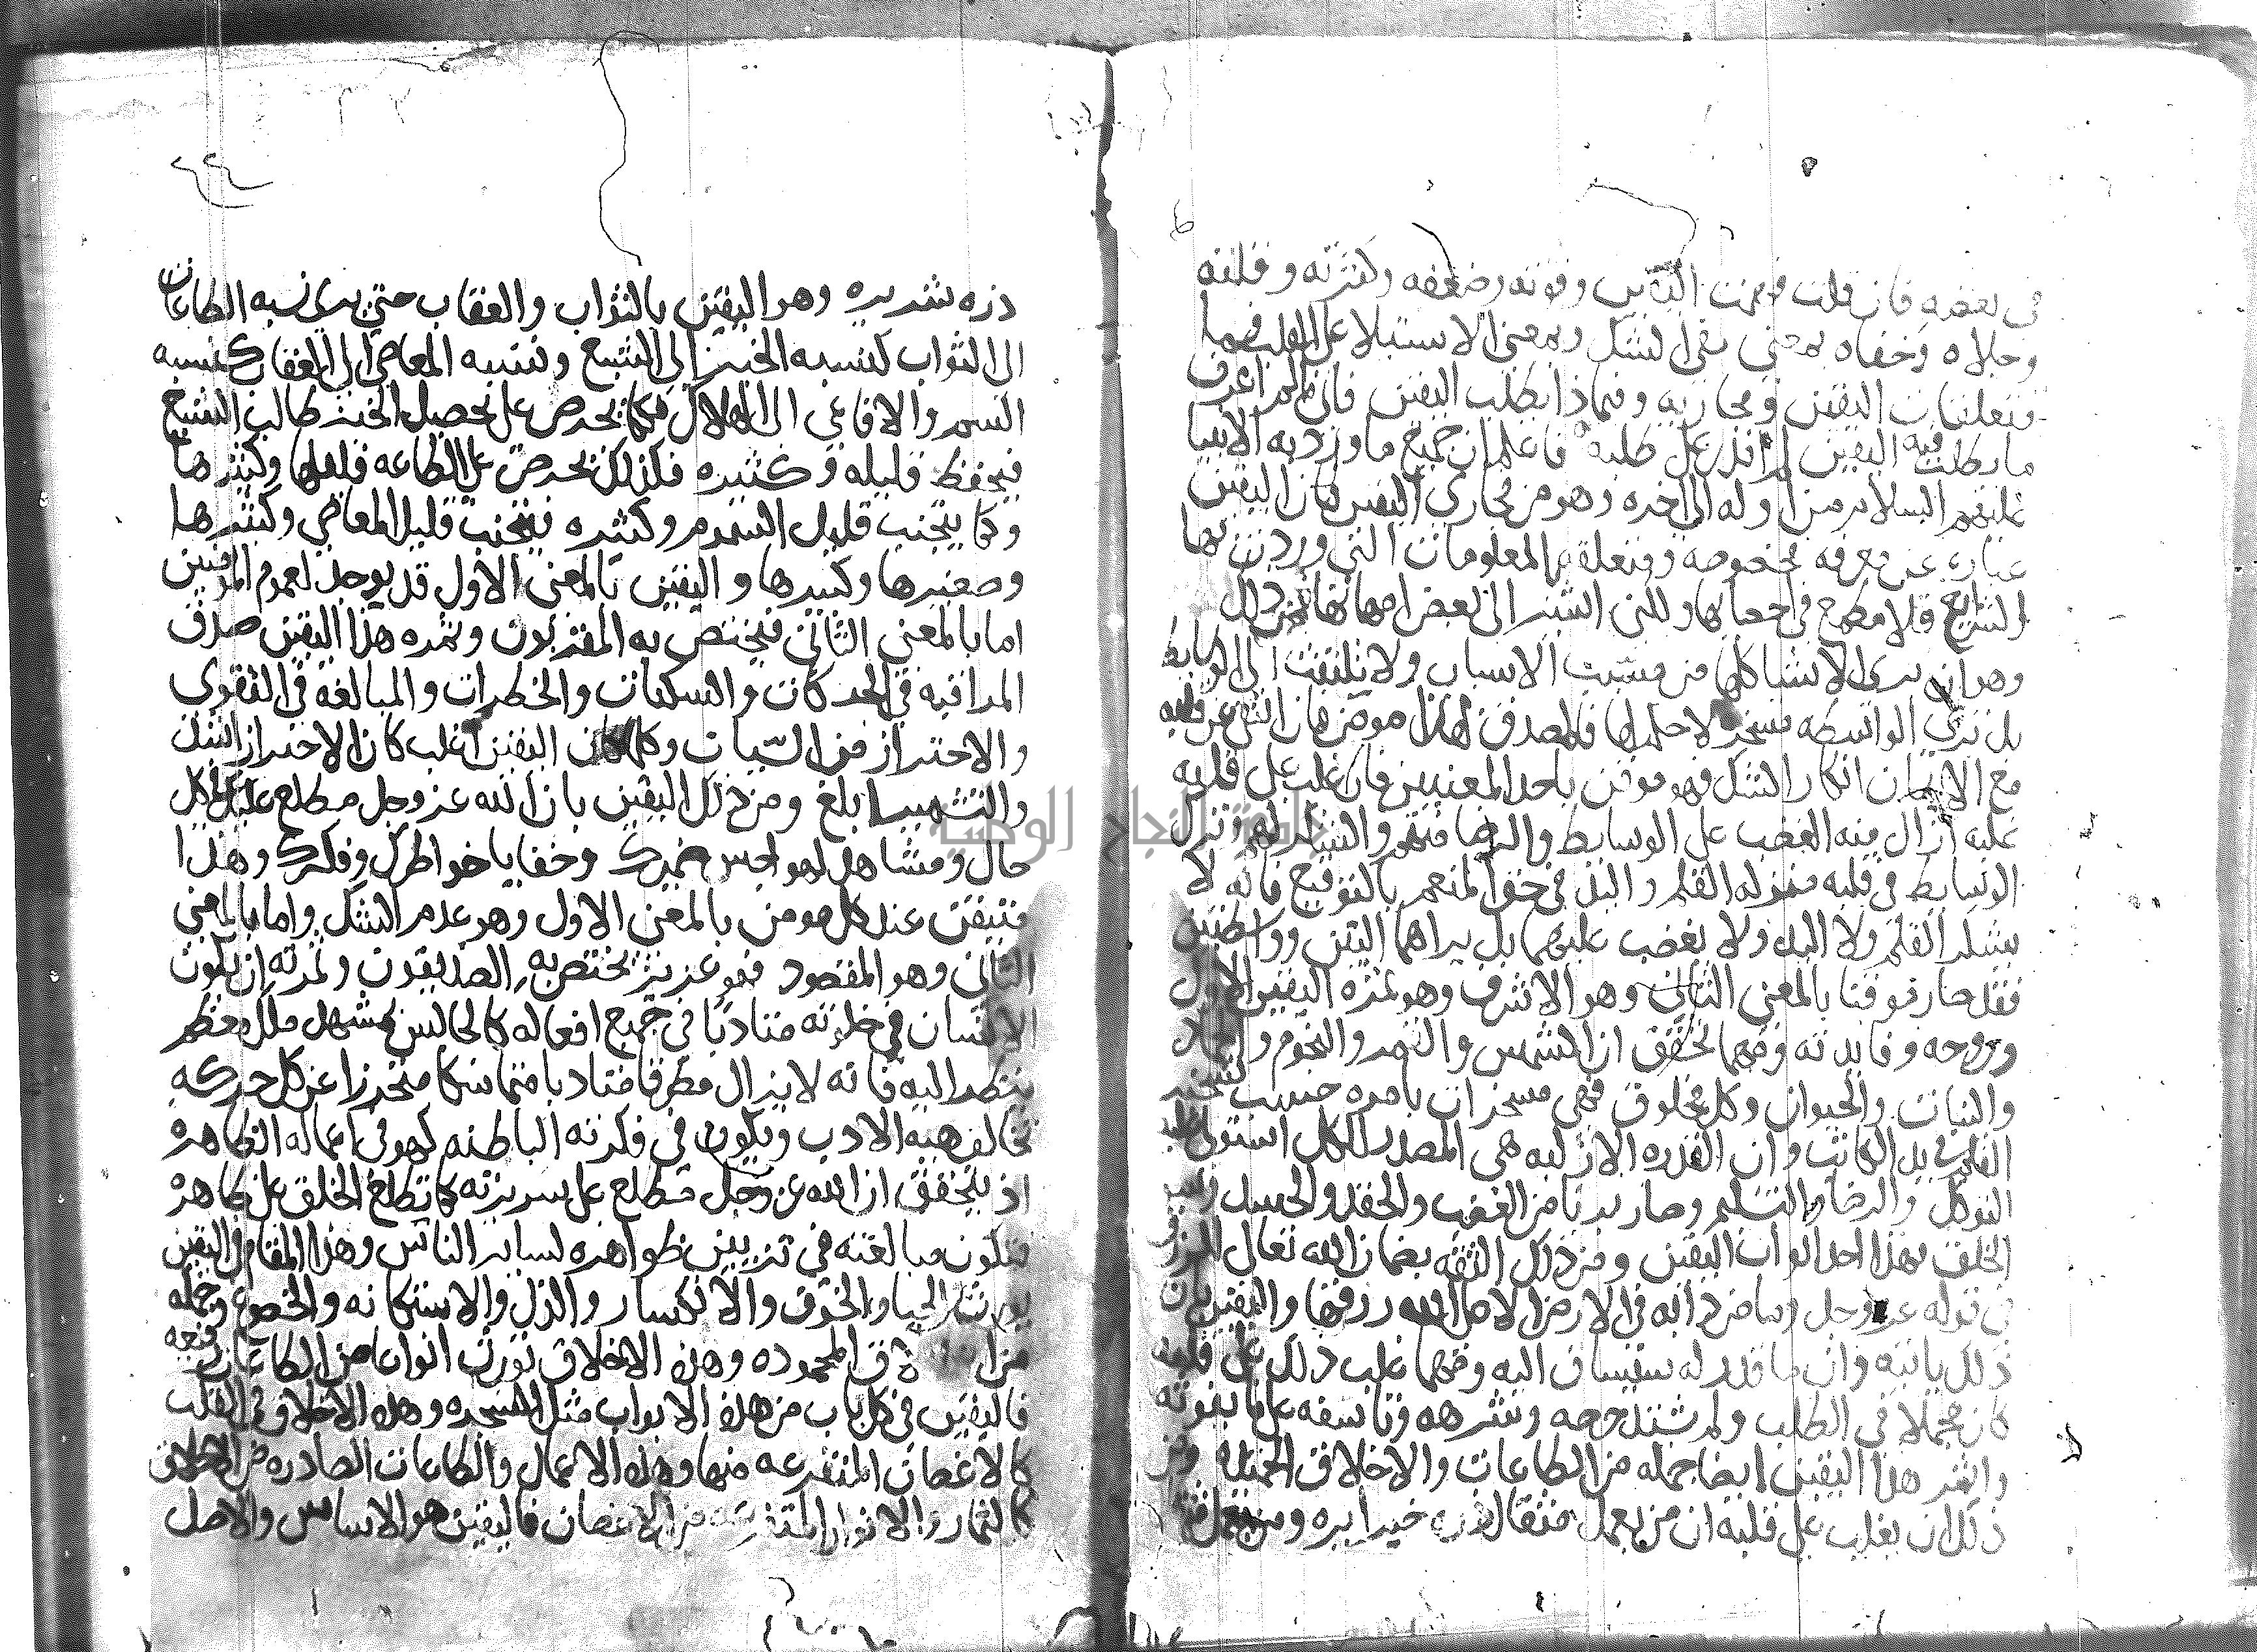 في بعضه فان قلت فهمت اليقين وقوته وضعفه وكثرته وقلته
وجلاه وخفاه بمعنى نفى الشك وبمعنى الاستيلا على القلب فما
متعلقات اليقين ومجاريه وفيماذا يطلب اليقين فاني ما لم اعرف
ما يطلب فيه اليقين لم اقدر على طلبه فاعلم ان جميع ما ورد به الانبيا
عليهم السلام من اوله الى اخره وهو من مجاري اليقين فان اليقين
عباره عن معرفه مخصوصه ومتعلقه المعلومات التي وردت بها
الشرايع فلا مطمع في احصايها ولكني اشير الى بعض امهاتها فمن ذلك
وهو ان يرى الاشيا كلها من مسبب الاسباب ولا يلتفت الى الوسايط
بل يرى الواسطه مسخره لا حكم لها فالمصدق بهذا مومن فان انتفى عن قلبه
مع الايمان انكار الشك فهو موقن باحد المعنيين فان غلب على قلبه
غلبه ازال منه الغضب على الوسايط والرضا منهم والشكر لهم نزل
الوسايط في قلبه منزله القلم واليد في حق المنعم بالتوقيع فانه لا
يشكر القلم ولا اليد ولا يغضب عليهما بل يراهما التين وواسطتين
فقد صار موقنا بالمعنى الثاني وهو الاشرف وهو ثمره اليقين الاول
وروحه وفايدته ومهما تحقق ان الشمس والقمر والنجوم والجماد
والنبات والحيوان وكل مخلوق فهي مسخرات بامره حسب تسخير
القلم في يد الكاتب وان القدره الازليه هي المصدر للكل استولى عليه
التوكل والرضا والتسليم وصار بريا من الغضب والحقد والحسد
الخلق فهذا احد ابواب اليقين ومن ذلك الثقه بضمان الله تعالى للرزق
في قوله عز وجل وما من دابه في الارض الا على الله رزقها واليقين بان
ذلك ياتيه وان ما قدر له سينساق اليه ومهما غلب ذلك على قلبه
كان مجملا في الطلب ولم يشتد حرصه وشرهه وتاسفه على ما يفوته
واثمر هذا اليقين ايضا جمله من الطاعات والاخلاق الجميله ومن
ذلك ان يغلب على قلبه ان من يعمل مثقال ذره خيرا يره ومن يعمل مثقال
٤٤
ذره شرا يره وهو اليقين بالثواب والعقاب حتي يرى نسبه الطاعات
الى الثواب كنسبه الخبز الى الشبع ونسبه المعاصي الى العقاب كنسبه
السم والافاعي الى الهلاك فكما يحرص على تحصيل الخبز طالب الشبع
فيحفظ قليله وكثيره فكذلك يحرص على الطاعه قليلها وكثيرها
وكما يتجنب قليل السموم وكثيره فيتجنب قليل المعاصي وكثيرها
وصغيرها وكبيرها واليقين بالمعنى الاول قد يوجد لعموم المومنين
اما بالمعني الثاني فيختص به المقربون وثمره هذا اليقين صدق
المراقبه في الحركات والسكنات والخطرات والمبالغه في التقوى
والاحتراز من السيات وكلما كان اليقين اغلب كان الاحتراز اشد
والتشمير ابلغ ومن ذلك اليقين بان الله عز وجل مطلع عليك في كل
حال ومشاهد لهواجس ضميرك وخفايا خواطرك وفكرك وهذا
متيقن عند كل مومن بالمعنى الاول وهو عدم الشك واما بالمعنى
الثاني وهو المقصود فهو عزيز يختص به الصديقون وثمرته ان يكون
الانسان في خلوته متادبا في جميع افعاله كالجالس بمشهد ملك معظم
ينظر اليه فانه لا يزال مطرقا متادبا متماسكا متحرزا عن كل حركه
تخالف هيه الادب ويكون في فكرته الباطنه كهو في اعماله الظاهره
اذ يتحقق ان الله عز وجل مطلع على سريرته كما تطلع الخلق على ظاهره
فتكون مبالغته في تزيين ظواهره لساير الناس وهذا المقام في اليقين
يورث الحيا والخوف والانكسار والذل والاستكانه والخضوع وجمله
من المحموده وهذه الاخلاق تورث انواعا من الطاعات رفيعه
فاليقين في كل باب من هذه الابواب مثل الشجره وهذه الاخلاق في القلب
كالاغصان المتفرعه منها وهذه الاعمال والطاعات الصادره من الاخلاق
كالثمار والانوار المتفرعه من الاغصان فاليقين هو الاساس والاصل
جامعة النجاح الوطنية